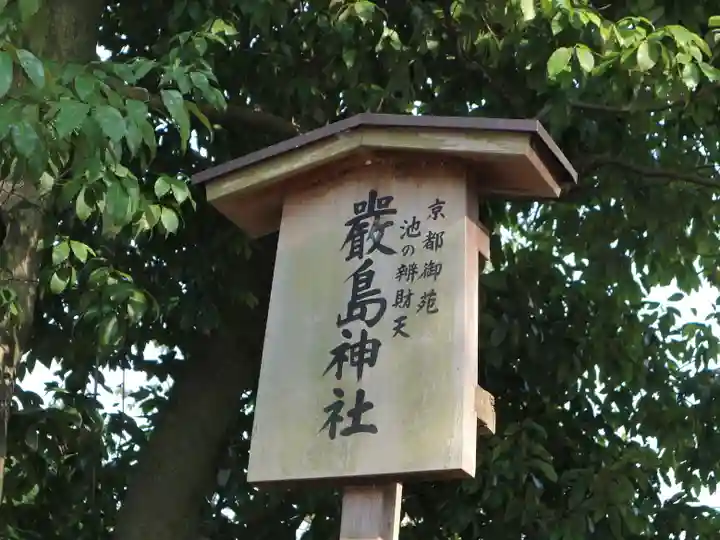 京都御苑
池の辨財天
嚴島神社